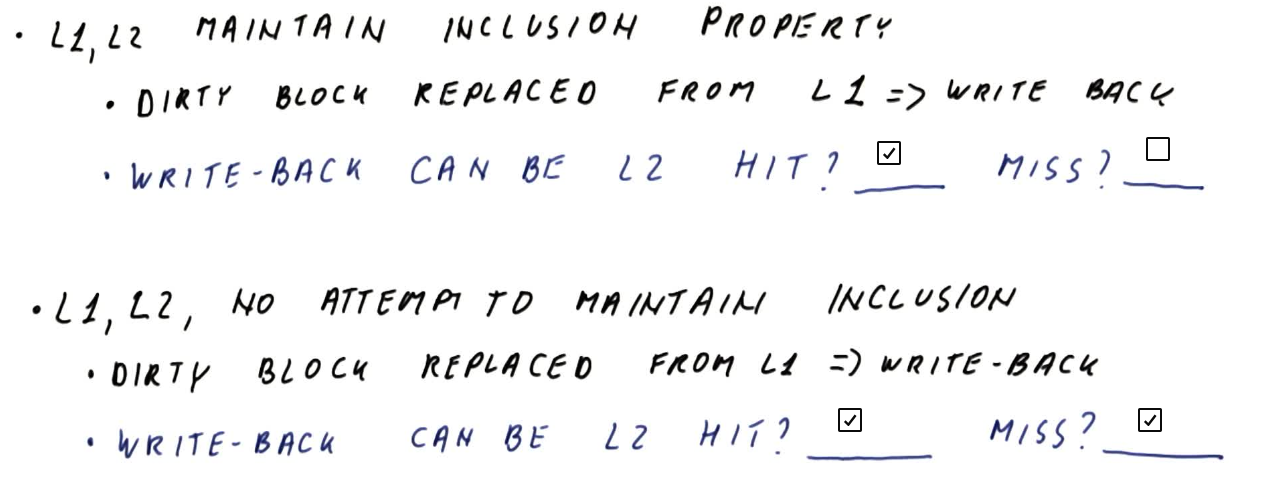 • L1, L2 MAINTAIN INCLUSION PROPERTY
• DIRTY BLOCK REPLACED FROM L1 => WRITE BACK
• WRITE-BACK CAN BE L2 HIT? ☑ MISS? ☐
• L1, L2, NO ATTEMPT TO MAINTAIN INCLUSION
• DIRTY BLOCK REPLACED FROM L1 => WRITE-BACK
• WRITE-BACK CAN BE L2 HIT? ☑ MISS? ☑